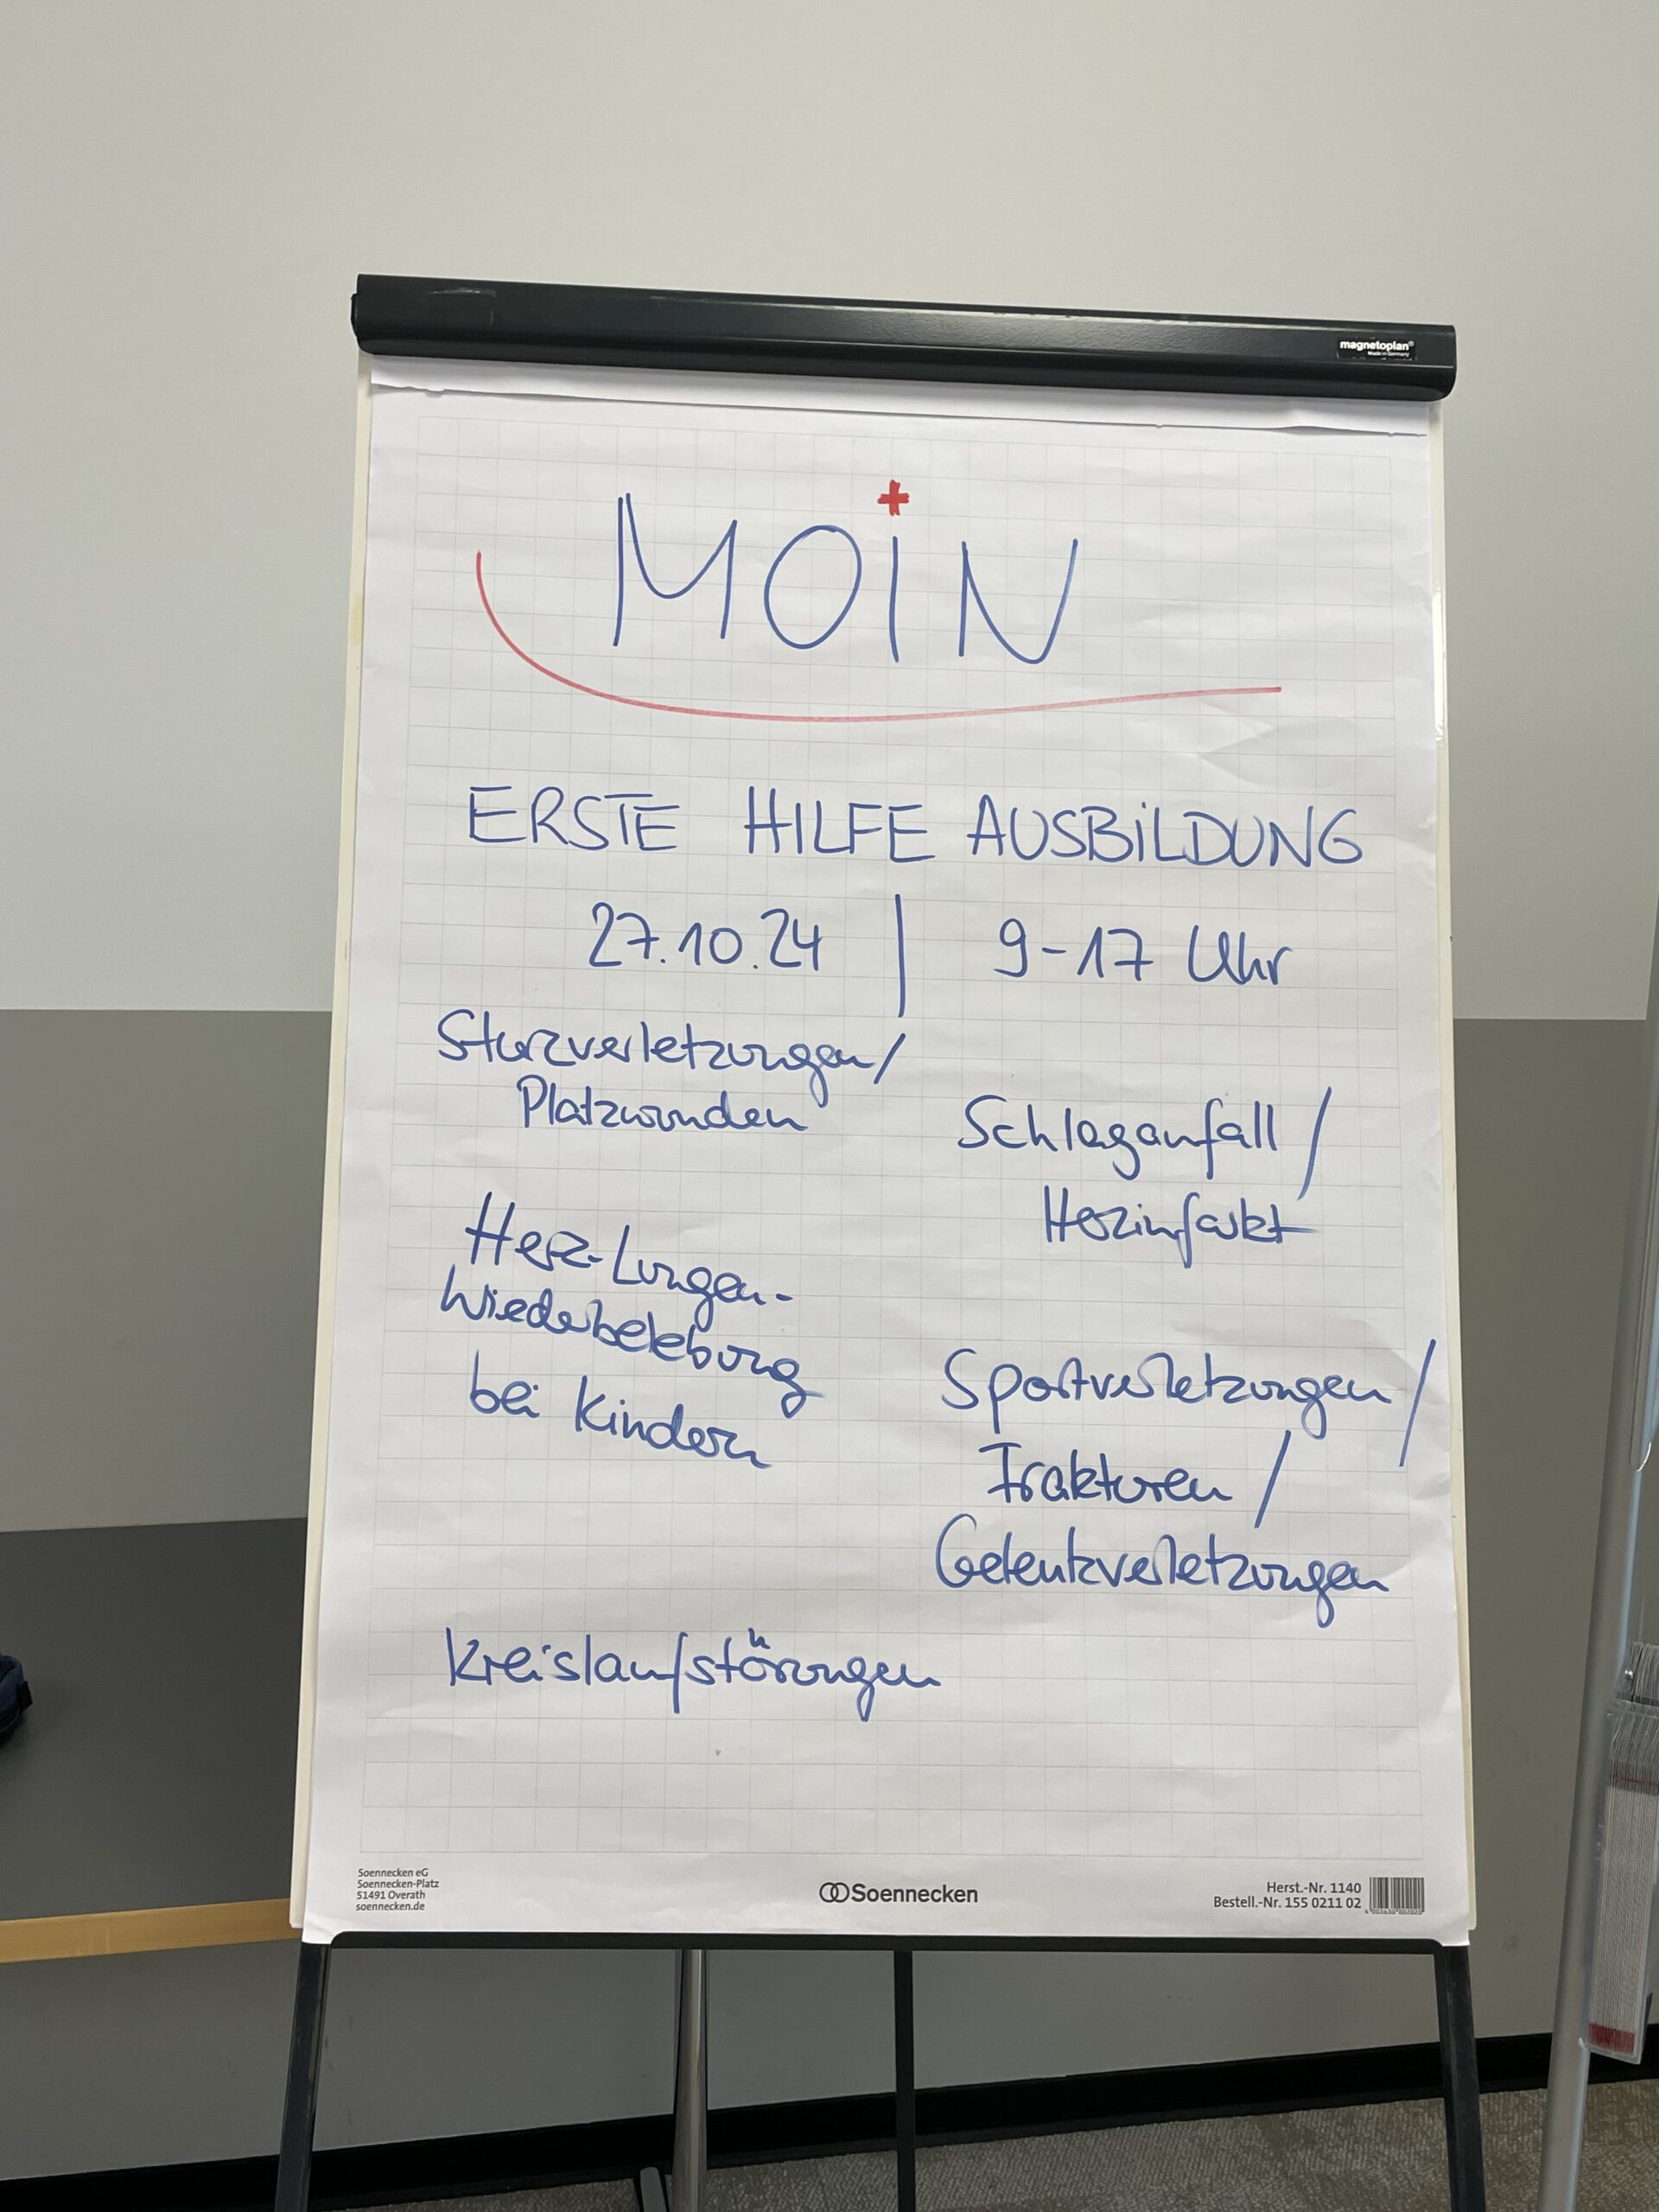 magnetoplan®
Made in Germany
MOiN
ERSTE HILFE AUSBiLDUNG
27.10.24 | 9-17 Uhr
Sturzverletzungen/
Platzwunden
Schlaganfall /
Herzinfarkt
Herz-Lungen-
Wiederbelebung
bei Kindern
Sportverletzungen /
Frakturen /
Gelenkverletzungen
Kreislaufstörungen
Soennecken eG
Soennecken-Platz
51491 Overath
soennecken.de
Soennecken
Herst.-Nr. 1140
Bestell.-Nr. 155 0211 02